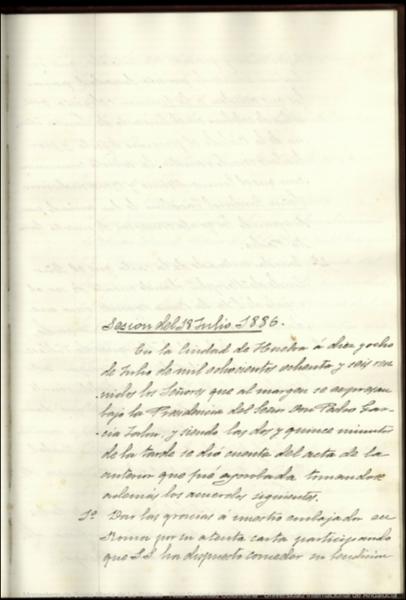 Sesion del 18 Julio 1886.
En la Ciudad de Huelva á diez y ocho
de Julio de mil ochocientos ochenta y seis reu-
nidos los Señores que al margen se expresan
bajo la Presidencia del Señor Don Pedro Gar-
cia Jalon, y siendo las dos y quince minutos
de la tarde se dió cuenta del acta de la
anterior que fué aprobada tomandose
además los acuerdos siguientes.
1º Dar las gracias á nuestro embajador en
Roma por su atenta carta participando
que S.S. ha dispuesto conceder su bendicion